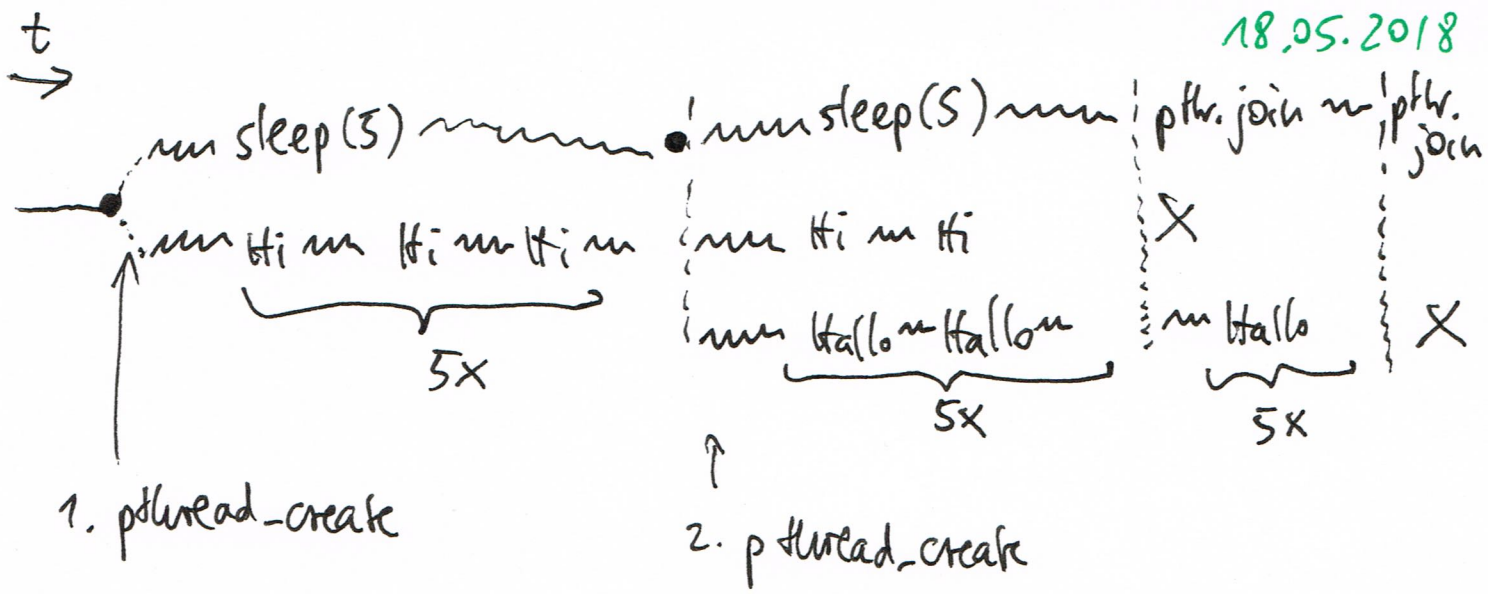 t
18.05.2018
sleep(5)
sleep(5)
pthr. join
pthr.
join
Hi Hi Hi
Hi Hi
X
Hallo Hallo
Hallo
X
5X
5X
5X
1. pthread_create
2. pthread_create